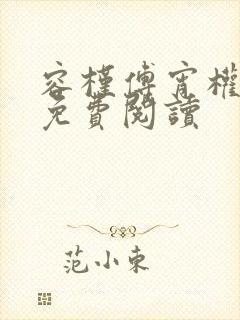 容槿傅宵權
免費閱讀
范小東